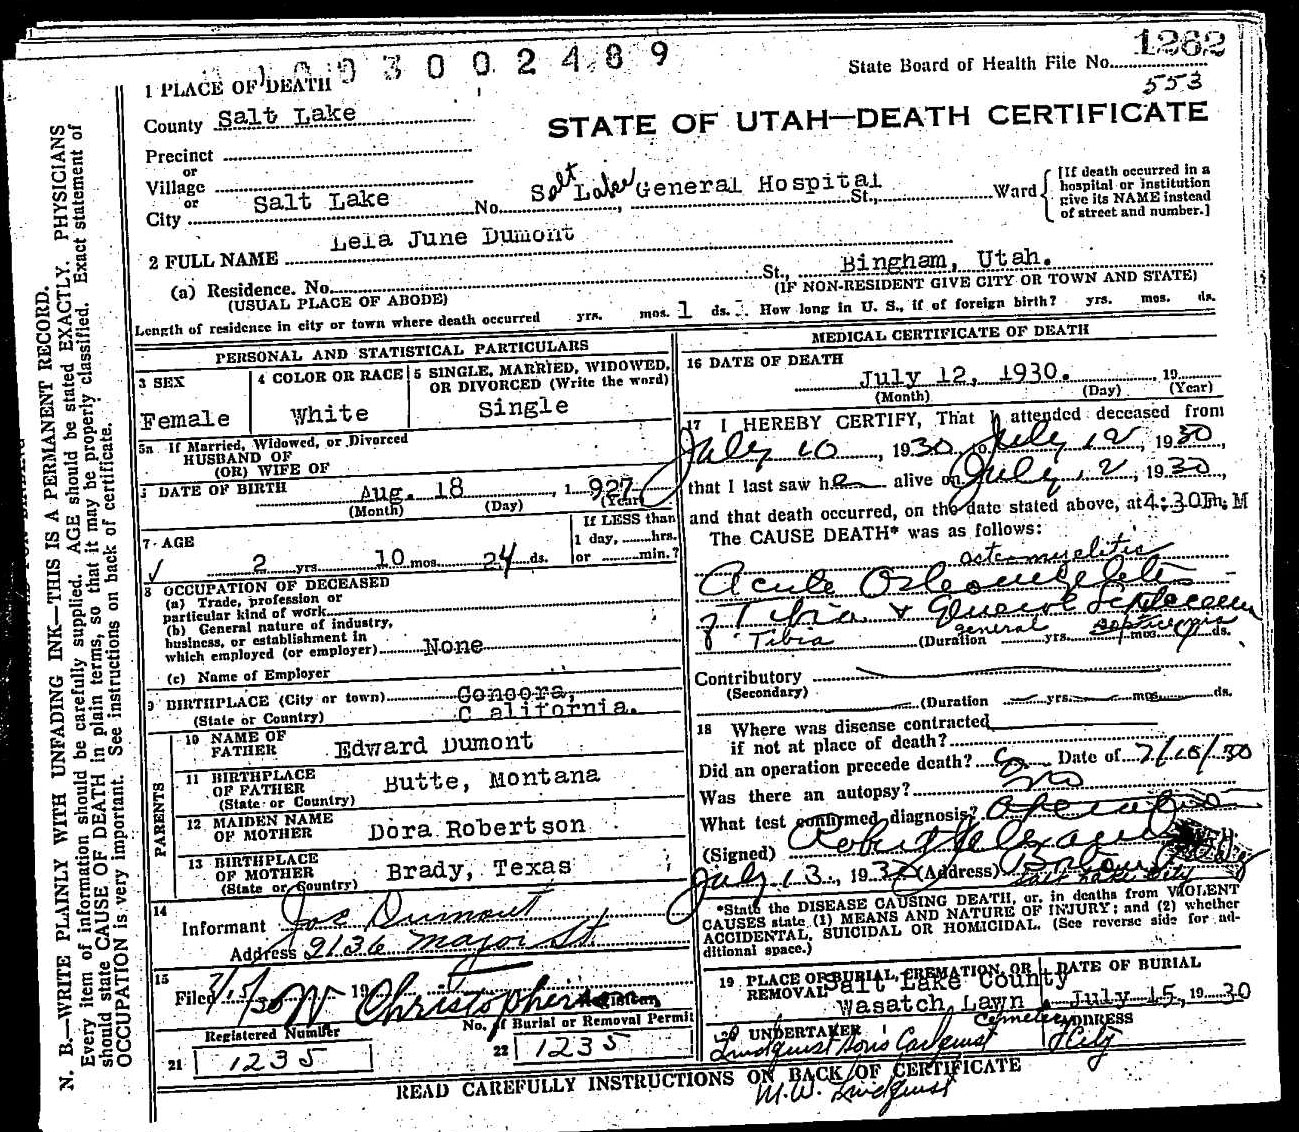 1003002489
1262
State Board of Health File No.
553
1 PLACE OF DEATH
County Salt Lake
STATE OF UTAH—DEATH CERTIFICATE
Precinct
or
Village
or
City Salt Lake No. Salt Lake General Hospital St., Ward
[If death occurred in a
hospital or institution
give its NAME instead
of street and number.]
2 FULL NAME Lela June Dumont
(a) Residence. No. St., Bingham, Utah.
(USUAL PLACE OF ABODE) (IF NON-RESIDENT GIVE CITY OR TOWN AND STATE)
Length of residence in city or town where death occurred yrs. mos. 1 ds. How long in U. S., if of foreign birth? yrs. mos. ds.
PERSONAL AND STATISTICAL PARTICULARS
3 SEX
Female
4 COLOR OR RACE
White
5 SINGLE, MARRIED, WIDOWED,
OR DIVORCED (Write the word)
Single
5a If Married, Widowed, or Divorced
HUSBAND OF
(OR) WIFE OF
DATE OF BIRTH Aug. 18, 1927
(Month) (Day) (Year)
7 AGE
2 yrs. 10 mos. 24 ds.
If LESS than
1 day, hrs.
or min.?
8 OCCUPATION OF DECEASED
(a) Trade, profession or
particular kind of work
(b) General nature of industry,
business, or establishment in
which employed (or employer) None
(c) Name of Employer
9 BIRTHPLACE (City or town) Concora,
(State or Country) California.
PARENTS
10 NAME OF
FATHER Edward Dumont
11 BIRTHPLACE
OF FATHER
(State or Country) Butte, Montana
12 MAIDEN NAME
OF MOTHER Dora Robertson
13 BIRTHPLACE
OF MOTHER
(State or Country) Brady, Texas
14
Informant Joe Dumont
Address 9136 Major St.
15
Filed 7/15/30 19 W Christopherson
Registered Number No. of Burial or Removal Permit
21 1235 22 1235
MEDICAL CERTIFICATE OF DEATH
16 DATE OF DEATH
July 12, 1930. , 19
(Month) (Day) (Year)
17 I HEREBY CERTIFY, That I attended deceased from
July 10, 1930 to July 12, 1930,
that I last saw her alive on July 12, 1930
and that death occurred, on the date stated above, at 4:30 P.m. M
The CAUSE DEATH* was as follows:
osteomyelitis
Acute Osteomyelitis
of Tibia & General Septicemia
Tibia general septicemia
(Duration yrs. mos. ds.
Contributory
(Secondary)
(Duration yrs. mos. ds.
18 Where was disease contracted
if not at place of death?
Did an operation precede death? Date of 7/10/30
Was there an autopsy? no
What test confirmed diagnosis?
(Signed) Robert
July 13, 19 (Address)
Salt Lake City
*State the DISEASE CAUSING DEATH, or, in deaths from VIOLENT
CAUSES state (1) MEANS AND NATURE OF INJURY; and (2) whether
ACCIDENTAL, SUICIDAL OR HOMICIDAL. (See reverse side for ad-
ditional space.)
19 PLACE OF BURIAL, CREMATION, OR
REMOVAL Salt Lake County
Wasatch Lawn
Cemetery
DATE OF BURIAL
July 15, 1930
20 UNDERTAKER ADDRESS
Lindquist Sons City
M.W. Lindquist
READ CAREFULLY INSTRUCTIONS ON BACK OF CERTIFICATE
N. B.—WRITE PLAINLY WITH UNFADING INK—THIS IS A PERMANENT RECORD.
Every item of information should be carefully supplied. AGE should be stated EXACTLY. PHYSICIANS
should state CAUSE OF DEATH in plain terms, so that it may be properly classified. Exact statement of
OCCUPATION is very important. See instructions on back of certificate.